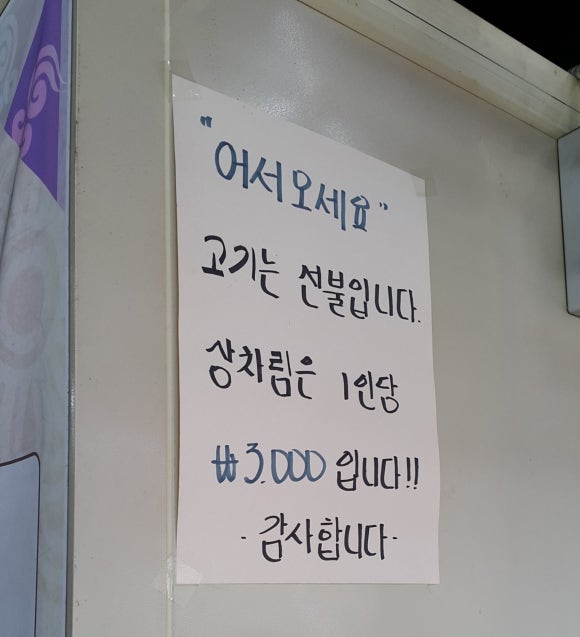 "어서오세요"
고기는 선불입니다.
상차림은 1인당
₩3.000 입니다!!
- 감사합니다 -